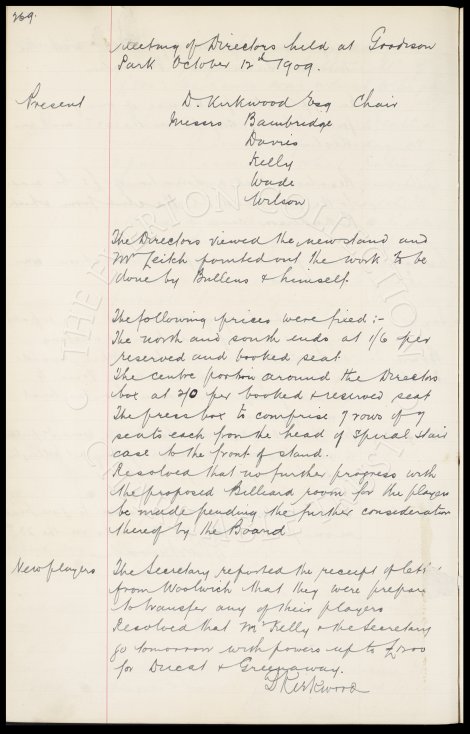 269.
Meeting of Directors held at Goodison
Park October 12th 1909.
Present
D. Kirkwood Esq Chair
Messrs Bainbridge
Davies
Kelly
Wade
Wilson
The Directors viewed the new stand and
Mr Leitch pointed out the work to be
done by Bullens & himself.
The following prices were fixed :-
The north and south ends at 1/6 per
reserved and booked seat
The centre portion around the Directors
box at 2/0 per booked & reserved seat
The press box to comprise 7 rows of 7
seats each from the head of Spiral Stair
case to the front of stand.
Resolved that no further progress with
the proposed Billiard room for the players
be made pending the further consideration
thereof by the Board
New players
The Secretary reported the receipt of
from Woolwich that they were prepare
to transfer any of their players
Resolved that Mr Kelly & the Secretary
go tomorrow with powers up to
for Ducat & Greenaway.
D Kirkwood
THE EVERTON COLLECTION